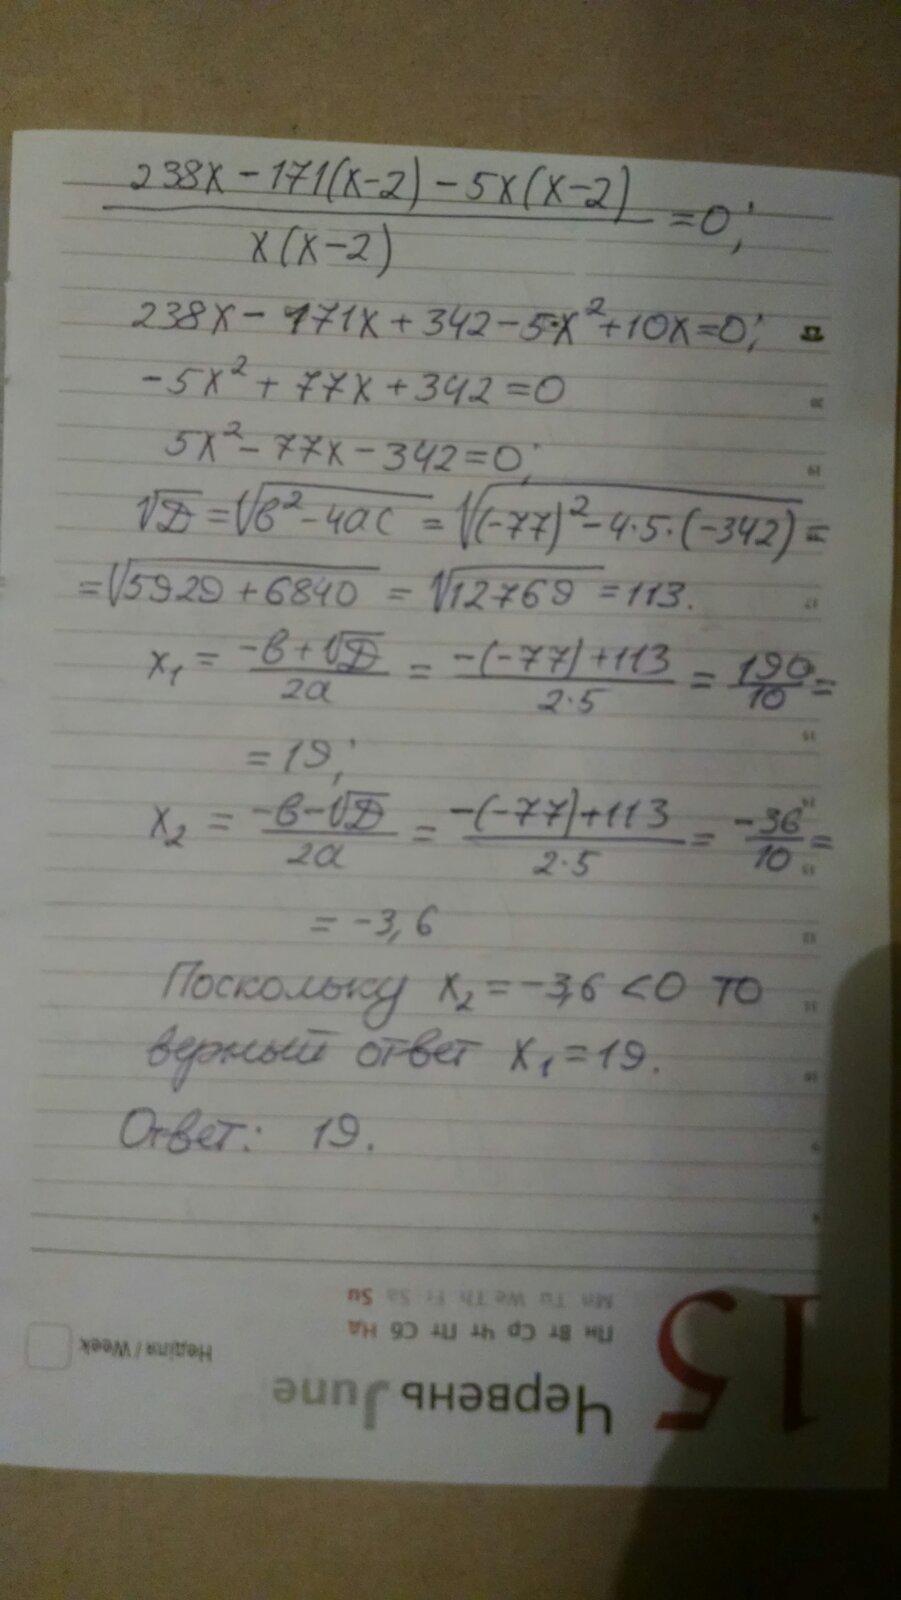 238x - 171(x-2) - 5x(x-2)
x(x-2)
=0;
238x - 171x + 342 - 5·x² + 10x = 0;
-5x² + 77x + 342 = 0
5x² - 77x - 342 = 0;
√D = √в² - 4ac = √(-77)² - 4·5·(-342) =
= √5929 + 6840 = √12769 = 113.
x₁ = -в + √D / 2a = -(-77) + 113 / 2·5 = 190 / 10 =
= 19;
x₂ = -в - √D / 2a = -(-77) + 113 / 2·5 = -36 / 10 =
= -3,6
Поскольку x₂ = -3,6 < 0 то
верный ответ x₁ = 19.
Ответ: 19.
Mn Tu We Th Fr Sa Su
Пн Вт Ср Чт Пт Сб Нд
Неділя / Week
Червень June
15